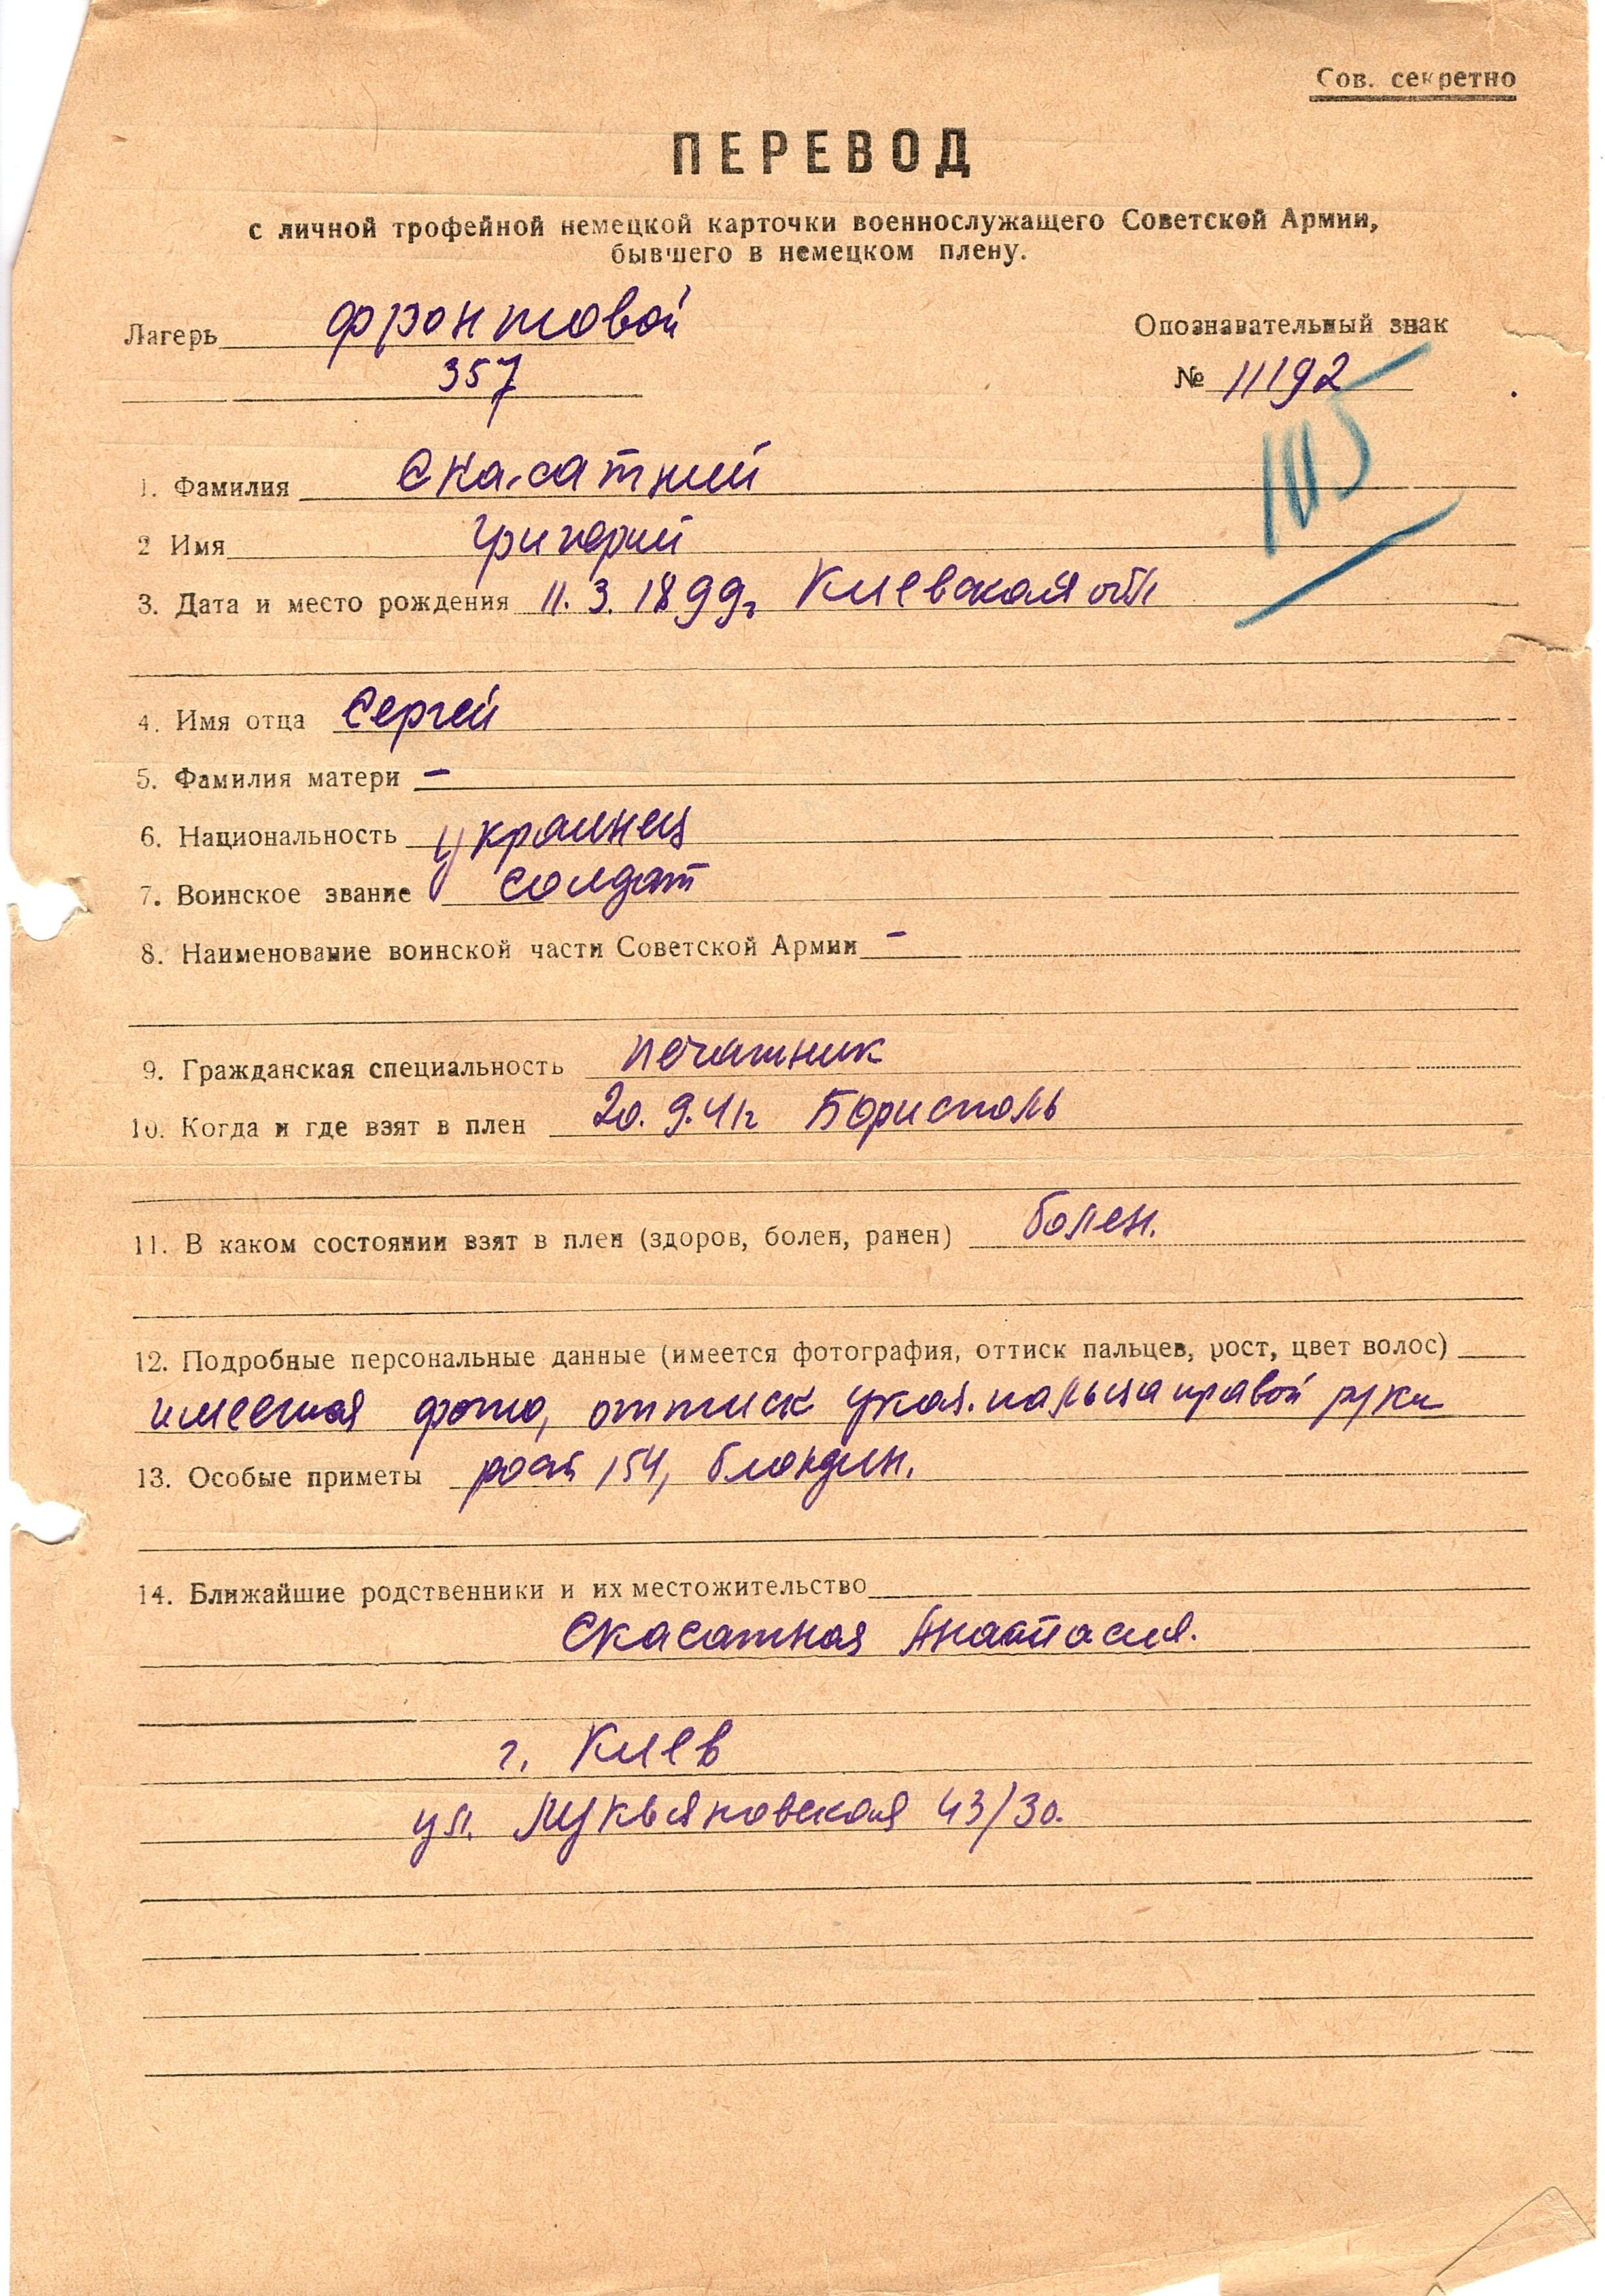 Сов. секретно
ПЕРЕВОД
с личной трофейной немецкой карточки военнослужащего Советской Армии,
бывшего в немецком плену.
Лагерь фронтовой
357
Опознавательный знак
№ 11192
1. Фамилия Скасатний
2 Имя Григорий
3. Дата и место рождения 11.3.1899г Киевская обл
4. Имя отца Сергей
5. Фамилия матери –
6. Национальность украинец
7. Воинское звание солдат
8. Наименование воинской части Советской Армии –
9. Гражданская специальность печатник
10. Когда и где взят в плен 20.9.41г Борисполь
11. В каком состоянии взят в плен (здоров, болен, ранен) болен.
12. Подробные персональные данные (имеется фотография, оттиск пальцев, рост, цвет волос)
имеется фото, оттиск указ. пальца правой руки
13. Особые приметы рост 154, блондин.
14. Ближайшие родственники и их местожительство
Скасатная Анастасия.
г. Киев
ул. Лукьяновская 43/30.